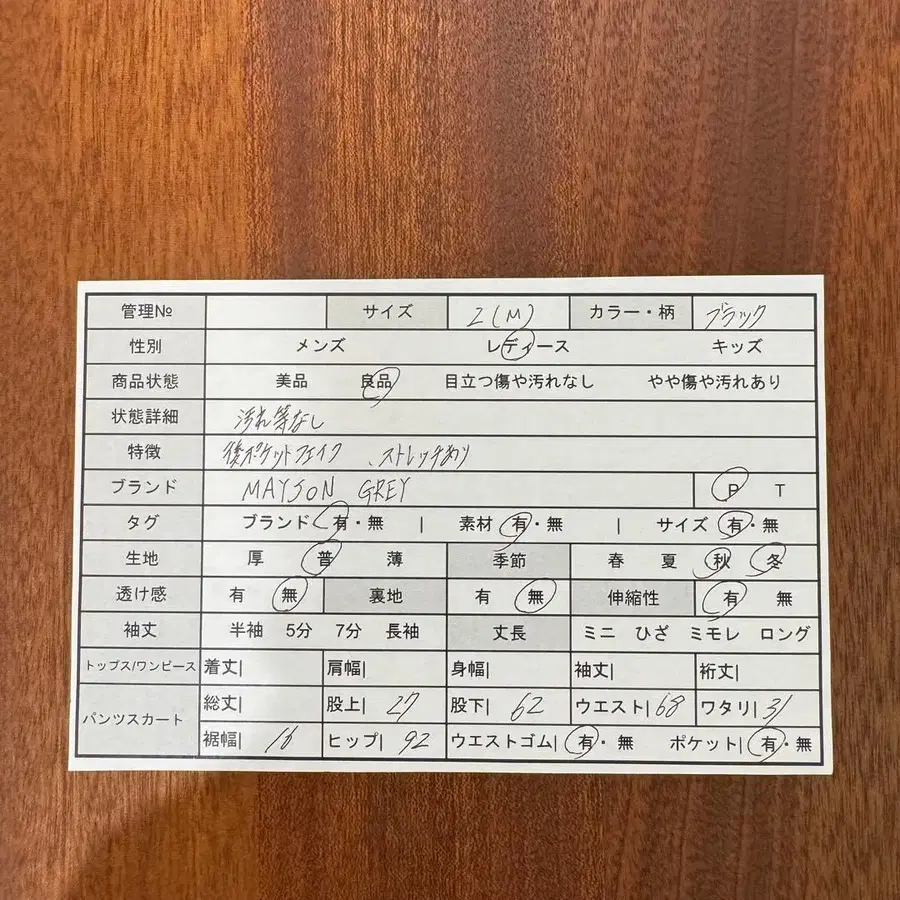 管理№ サイズ 2(M) カラー・柄 ブラック
性別 メンズ レディース キッズ
商品状態 美品 良品 目立つ傷や汚れなし やや傷や汚れあり
状態詳細 汚れ等なし
特徴 後ポケットフェイク、ストレッチあり
ブランド MAYSON GREY P T
タグ ブランド 有・無 | 素材 有・無 | サイズ 有・無
生地 厚 普 薄 季節 春 夏 秋 冬
透け感 有 無 裏地 有 無 伸縮性 有 無
袖丈 半袖 5分 7分 長袖 丈長 ミニ ひざ ミモレ ロング
トップス/ワンピース 着丈| 肩幅| 身幅| 袖丈| 裄丈|
パンツスカート 総丈| 股上| 27 股下| 62 ウエスト| 68 ワタリ| 31
裾幅| 16 ヒップ| 92 ウエストゴム| 有・無 ポケット| 有・無